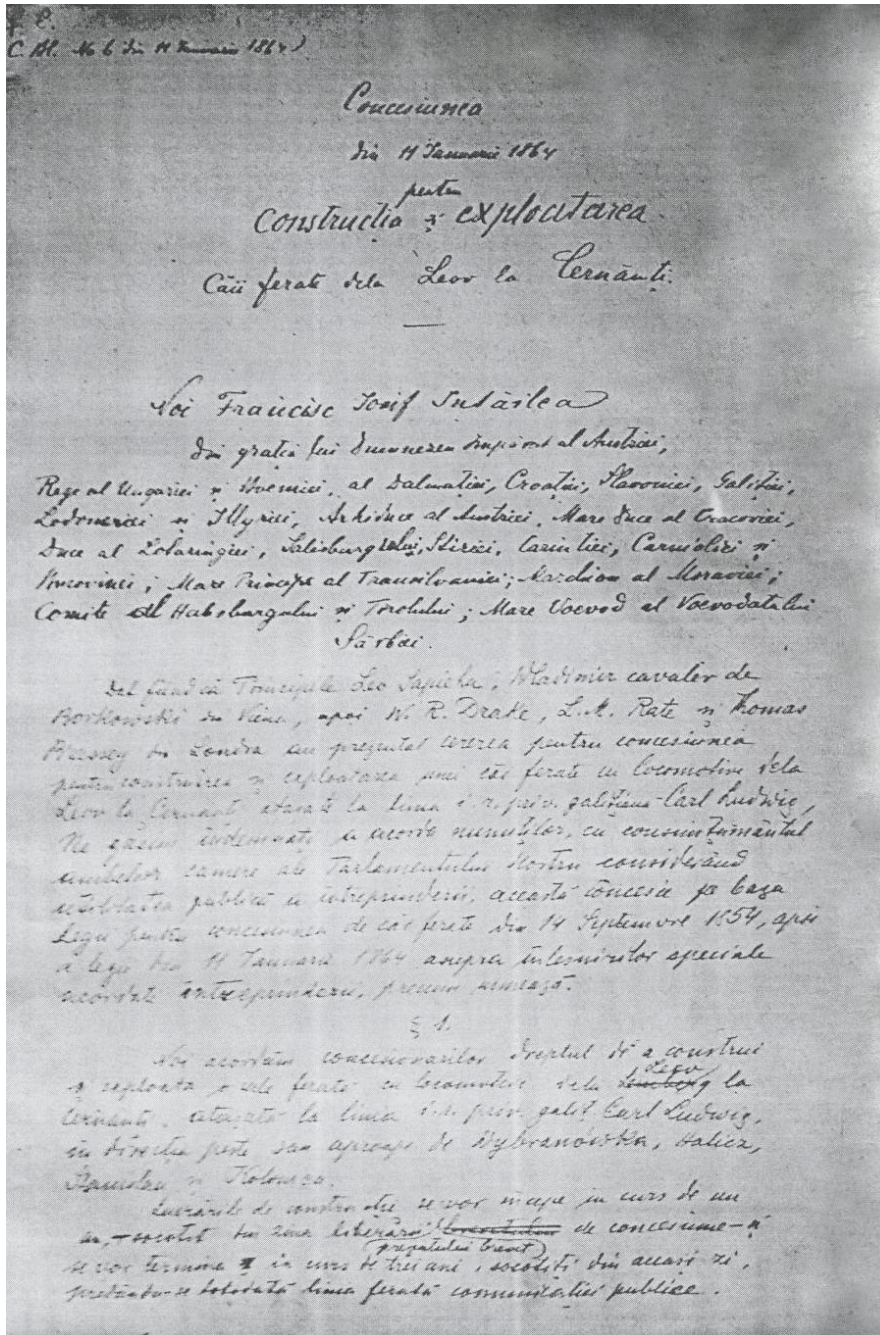 C. Bl. No 6 din 11 Ianuarie 1864)
Concesiunea
din 11 Ianuarie 1864
pentru
Construcția și exploatarea
Căii ferate dela Leov la Cernăuți.
Noi Francisc Iosif Întâilea
din grația lui Dumnezeu Împărat al Austriei,
Rege al Ungariei și Boemiei, al Dalmației, Croației, Slavoniei, Galiției,
Lodomeriei și Illyriei, Arhiduce al Austriei, Mare Duce al Cracoviei,
Duce al Lotaringiei, Salisburgului, Stiriei, Carintiei, Carnioliei și
Bucovinei; Mare Principe al Transilvaniei; Marchion al Moraviei;
Comite al Habsburgului și Tirolului; Mare Voevod al Voevodatului
Sârbiei.
Dat fiind că Principele Leo Sapieha, Wladimir cavaler de
Borkowski din Viena, apoi W. R. Drake, L. M. Rate și Thomas
Brassey din Londra au prezentat cererea pentru concesiunea
pentru construirea și exploatarea unei căi ferate cu locomotive dela
Leov la Cernăuți, atașată la linia c. r. priv. galițiana Carl Ludwig,
Ne găsim îndemnați a acorda numiților, cu consimțământul
ambelor camere ale Parlamentului Nostru considerând
utilitatea publică a întreprinderii, această concesie pe baza
Legii pentru concesiunea de căi ferate din 14 Septemvre 1854, apoi
a legii din 11 Ianuarie 1864 asupra înlesnirilor speciale
acordate întreprinderii, precum urmează.
§ 1.
Noi acordăm concesionarilor dreptul de a construi
Leov
și exploata o cale ferată cu locomotive dela Lemberg la
Cernăuți, atașată la linia c. r. priv. galiț. Carl Ludwig,
în direcția peste sau aproape de Wybranówka, Halicz,
Stanislau și Kolomea.
Lucrările de construcție se vor începe în curs de un
an, - socotit din ziua liberării de concesiune - și
prezentului brevet
se vor termina în curs de trei ani, socotiți din aceași zi,
predându-se totodată linia ferată comunicației publice.